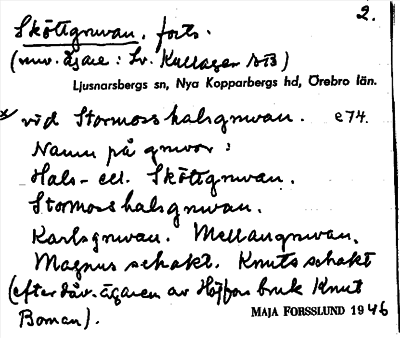 2.
Sköttgruvan, forts.
(nuv. ägare: Sv. Kullager
Ljusnarsbergs sn, Nya Kopparbergs hd, Örebro län.
x vid Stormosshalsgruvan. e74.
Namn på gruvor:
Hals- ell. Sköttgruvan.
Stormosshalsgruvan.
Karlsgruvan. Mellangruvan.
Magnus schakt. Knuts schakt
(efter dåv. ägaren av Högfors bruk Knut
Boman).
MAJA FORSSLUND 1946